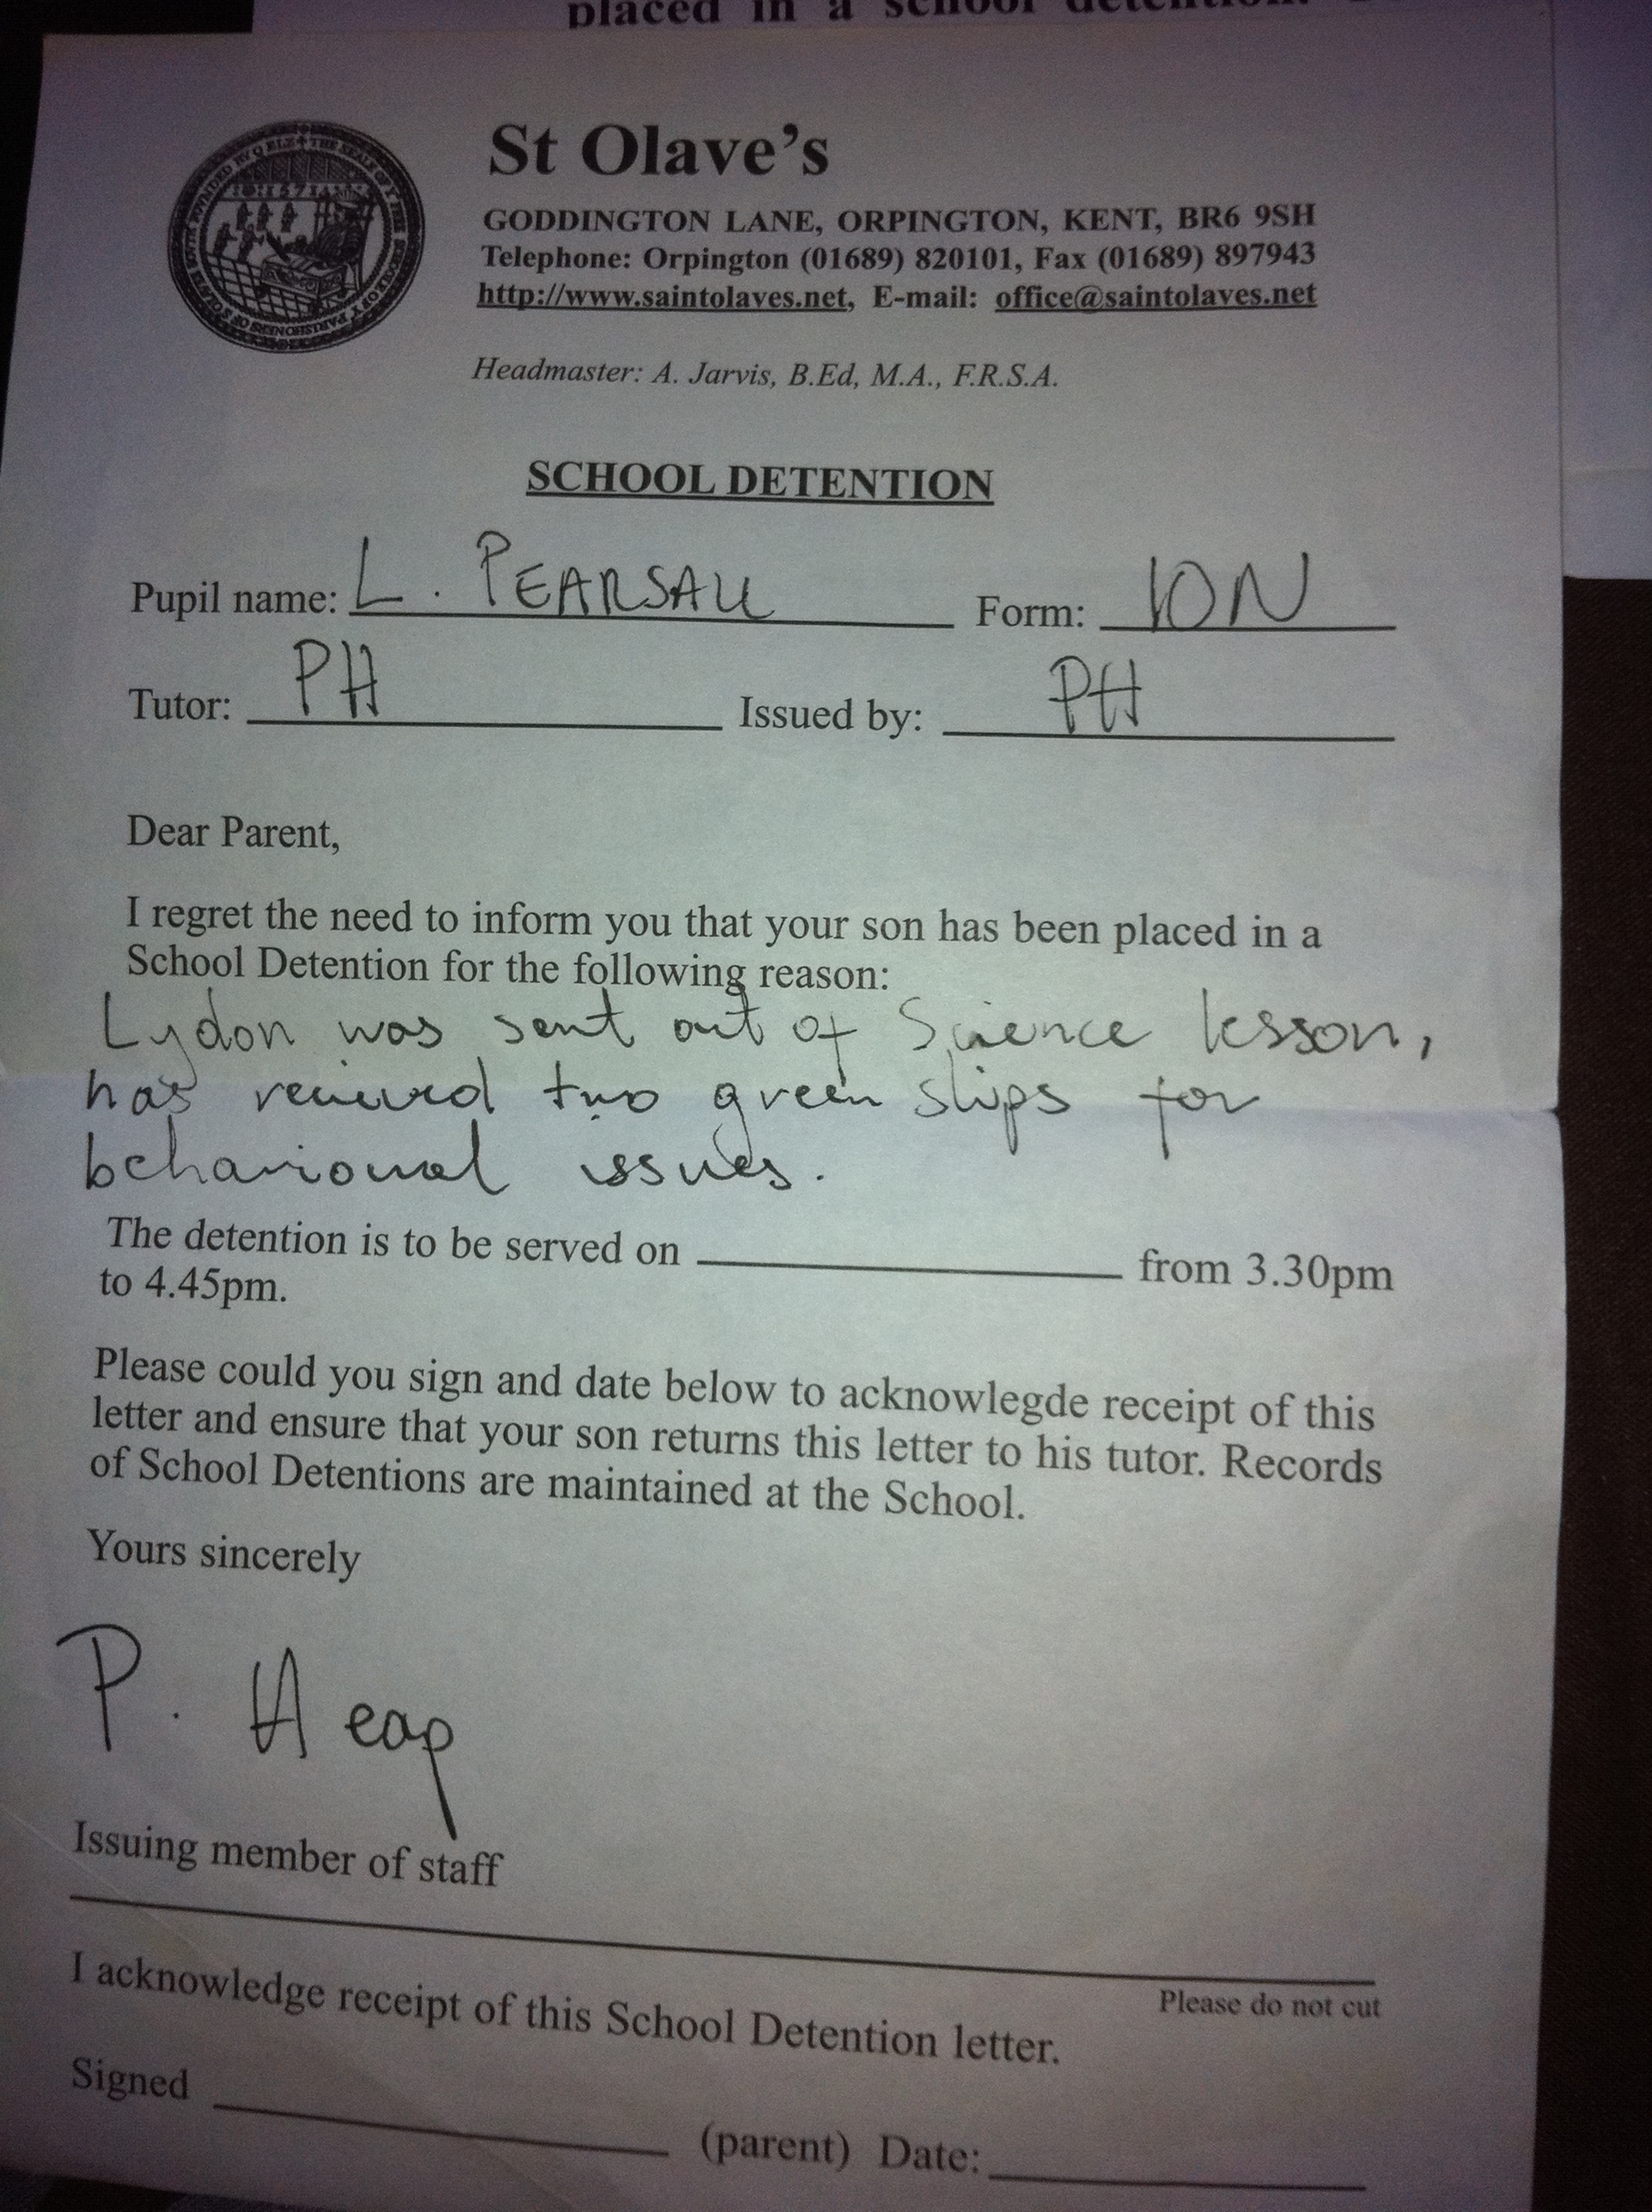 placed in a school detention.
St Olave's
GODDINGTON LANE, ORPINGTON, KENT, BR6 9SH
Telephone: Orpington (01689) 820101, Fax (01689) 897943
http://www.saintolaves.net, E-mail: office@saintolaves.net
Headmaster: A. Jarvis, B.Ed, M.A., F.R.S.A.
SCHOOL DETENTION
Pupil name: L. PEARSALL Form: 10N
Tutor: PH Issued by: PH
Dear Parent,
I regret the need to inform you that your son has been placed in a
School Detention for the following reason:
Lydon was sent out of Science lesson,
has received two green slips for
behavioural issues.
The detention is to be served on from 3.30pm
to 4.45pm.
Please could you sign and date below to acknowlegde receipt of this
letter and ensure that your son returns this letter to his tutor. Records
of School Detentions are maintained at the School.
Yours sincerely
P. Heap
Issuing member of staff
Please do not cut
I acknowledge receipt of this School Detention letter.
Signed (parent) Date: